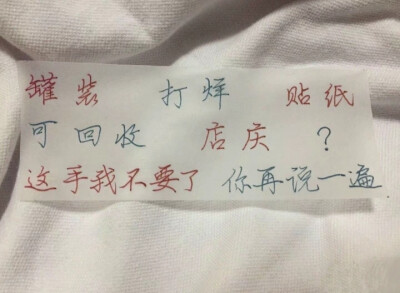 罐装 打烊 贴纸
可回收 店庆 ?
这手我不要了 你再说一遍